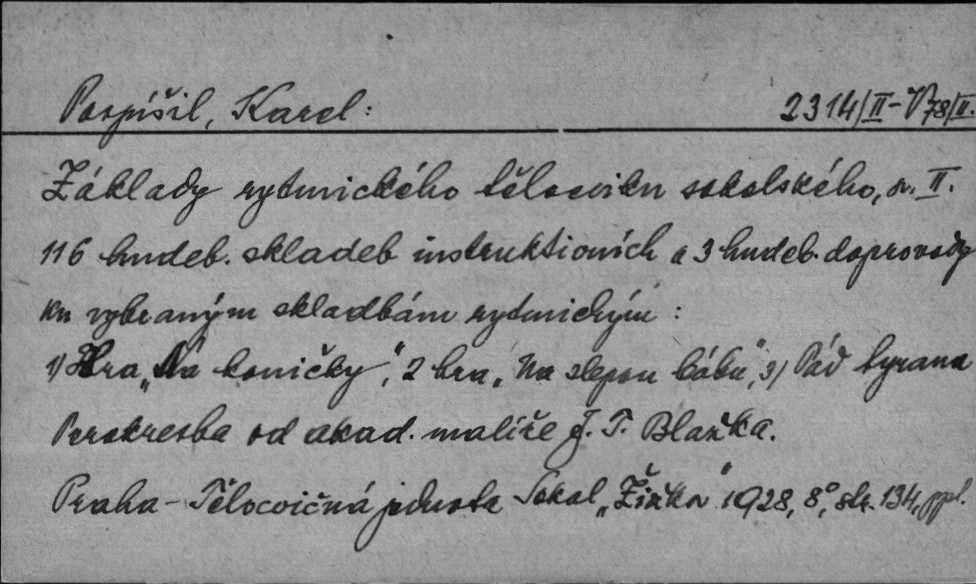 Pospíšil, Karel: 2314/II-V78/II.
Základy rytmického tělocviku sokolského, sv. II.
116 hudeb. skladeb instruktivních a 3 hudeb. doprovody
ku vybraným skladbám rytmickým:
1) Hra „Na koníčky“, 2 hra „Na slepou bábu“, 3) Pád tyrana
Perokresba od akad. malíře J. T. Blažka.
Praha - Tělocvičná jednota Sokol „Žižkov“ 1928, 8°, str. 134,